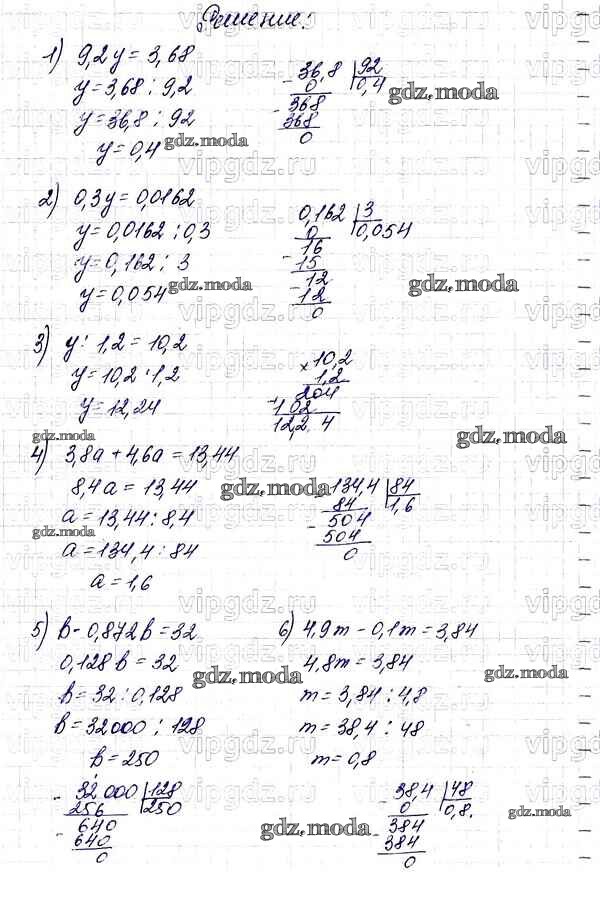 Решение:
1) 9,2y = 3,68
y = 3,68 : 9,2
y = 36,8 : 92
y = 0,4
- 36,8 | 92
0 | 0,4
- 368
368
0
gdz.moda
gdz.moda
2) 0,3y = 0,0162
y = 0,0162 : 0,3
y = 0,162 : 3
y = 0,054
0,162 | 3
0 | 0,054
16
- 15
12
- 12
0
gdz.moda
gdz.moda
3) y : 1,2 = 10,2
y = 10,2 · 1,2
y = 12,24
× 10,2
1,2
204
+ 102
12,24
gdz.moda
gdz.moda
4) 3,8a + 4,6a = 13,44
8,4a = 13,44
a = 13,44 : 8,4
a = 134,4 : 84
a = 1,6
- 134,4 | 84
84 | 1,6
- 504
504
0
gdz.moda
gdz.moda
5) b - 0,872b = 32
0,128b = 32
b = 32 : 0,128
b = 32000 : 128
b = 250
- 32000 | 128
256 | 250
- 640
640
0
gdz.moda
6) 4,9m - 0,1m = 3,84
4,8m = 3,84
m = 3,84 : 4,8
m = 38,4 : 48
m = 0,8
- 38,4 | 48
0 | 0,8.
- 384
384
0
gdz.moda
gdz.moda
gdz.moda
vipgdz.ru